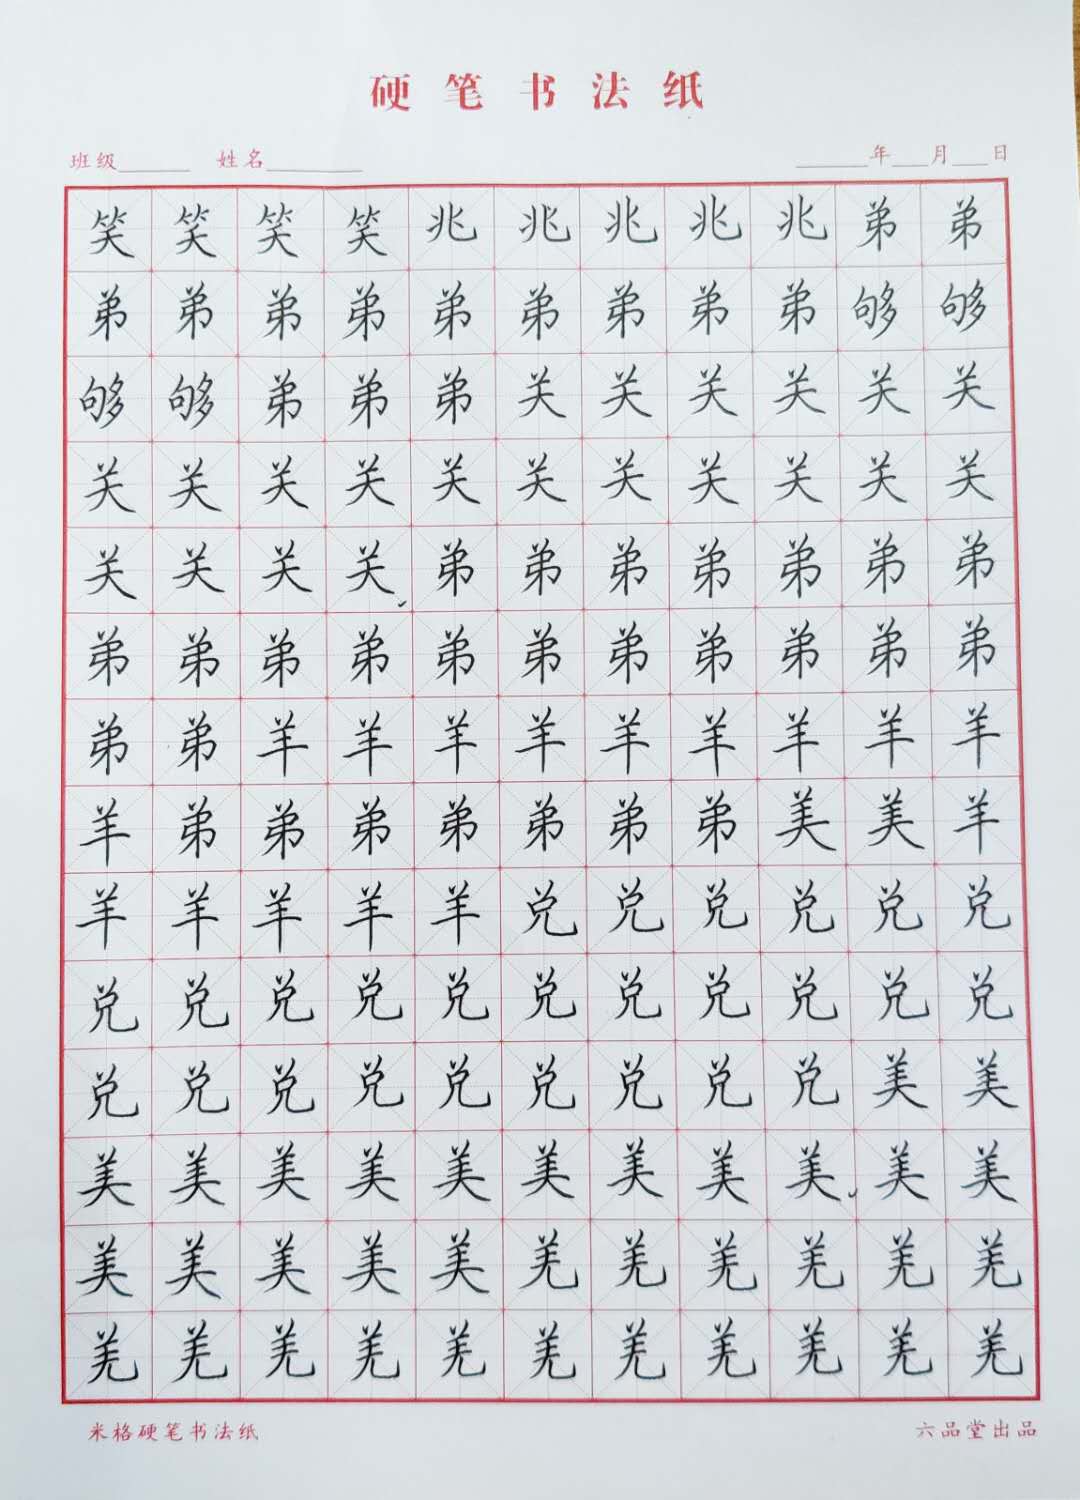 硬笔书法纸
班级 姓名 年 月 日
笑笑笑笑兆兆兆兆兆弟弟
弟弟弟弟弟弟弟弟弟够够
够够弟弟弟关关关关关关
关关关关关关关关关关关
关关关关弟弟弟弟弟弟弟
弟弟弟弟弟弟弟弟弟弟弟
弟弟羊羊羊羊羊羊羊羊羊
羊弟弟弟弟弟弟弟美美羊
羊羊羊羊羊兑兑兑兑兑兑
兑兑兑兑兑兑兑兑兑兑兑
兑兑兑兑兑兑兑兑兑美美
美美美美美美美美美美美
美美美美美羌羌羌羌羌羌
羌羌羌羌羌羌羌羌羌羌羌
米格硬笔书法纸 六品堂出品